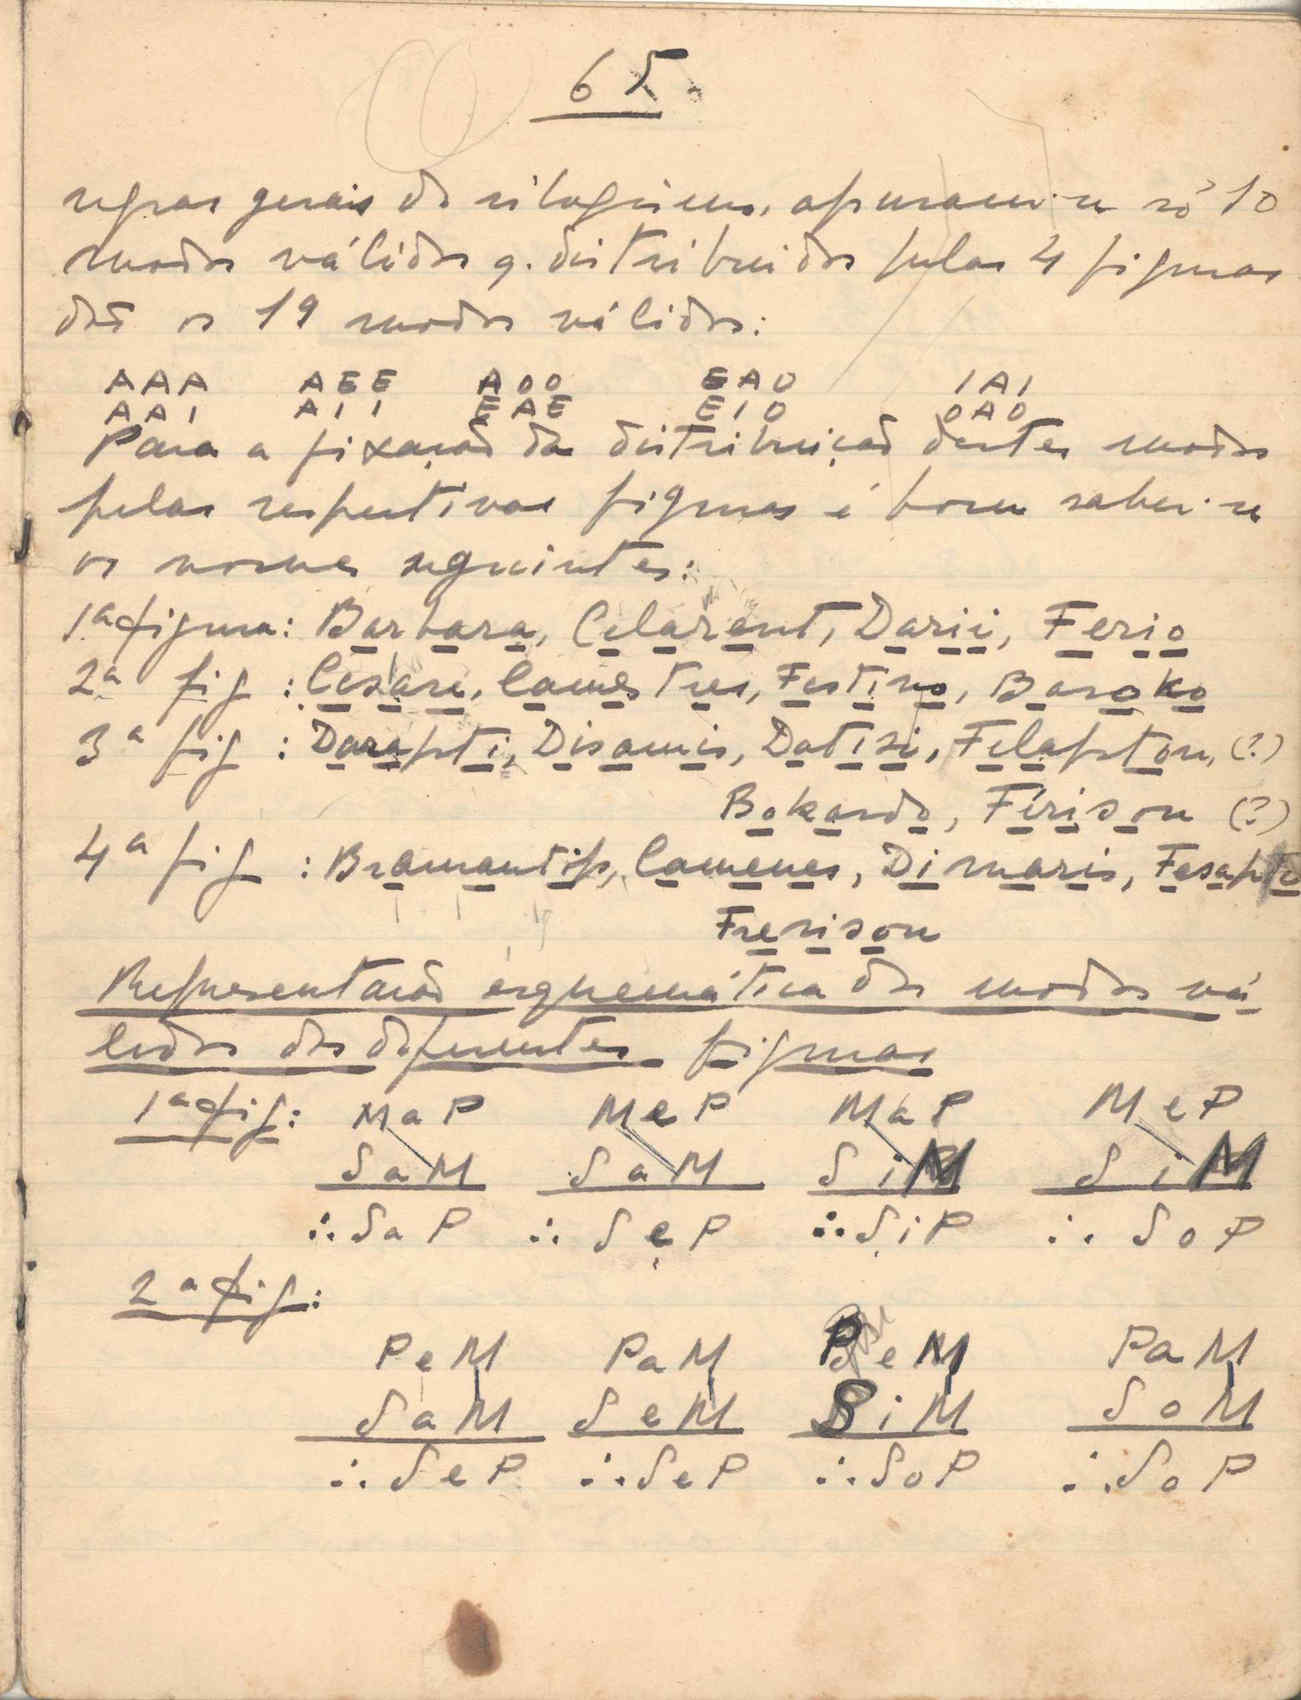 65.
regras gerais do silogismo, apuram-se só 10
modos válidos q. distribuidos pelas 4 figuras
dão os 19 modos válidos:
AAA AEE AOO EAO IAI
AAI AII EAE EIO OAO
Para a fixação da distribuição destes modos
pelas respectivas figuras é bom saber-se
os nomes seguintes:
1ª figura: Barbara, Celarent, Darii, Ferio
2ª fig: Cesare, Camestres, Festino, Baroko
3ª fig: Darapti, Disamis, Datisi, Felapton, (?)
Bokardo, Férison (?)
4ª fig: Bramantip, Camenes, Dimaris, Fesapto
Frerison
Representação esquemática dos modos vá-
lidos das diferentes figuras
1ª fig: MaP MeP MaP MeP
SaM SaM SiM SiM
∴ SaP ∴ SeP ∴ SiP ∴ SoP
2ª fig:
PeM PaM PeM PaM
SaM SeM SiM SoM
∴ SeP ∴ SeP ∴ SoP ∴ SoP